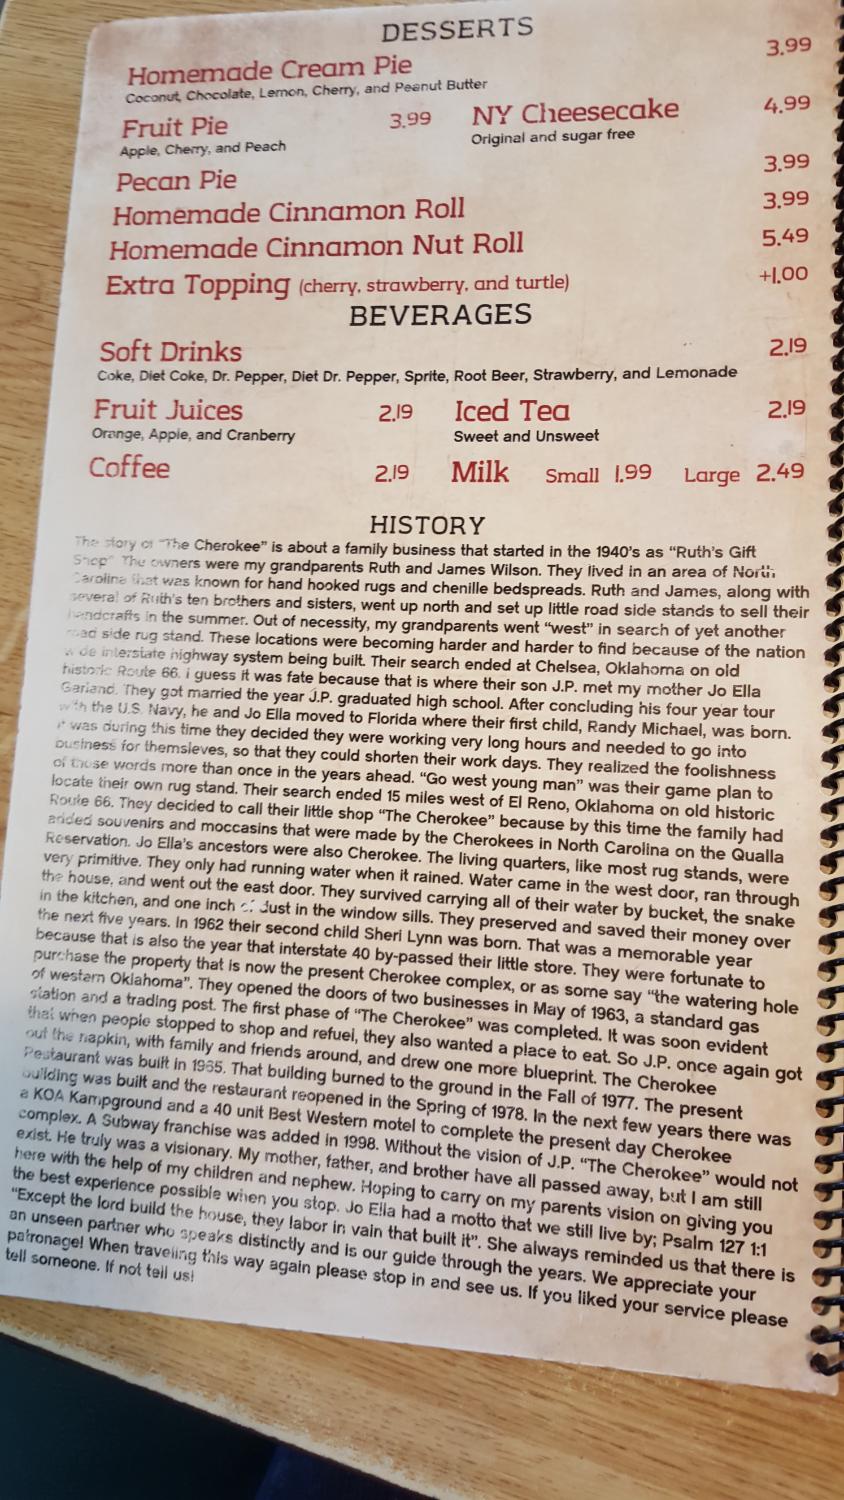 DESSERTS
Homemade Cream Pie 3.99
Coconut, Chocolate, Lemon, Cherry, and Peanut Butter
Fruit Pie 3.99 NY Cheesecake 4.99
Apple, Cherry, and Peach Original and sugar free
Pecan Pie 3.99
Homemade Cinnamon Roll 3.99
Homemade Cinnamon Nut Roll 5.49
Extra Topping (cherry, strawberry, and turtle) +1.00
BEVERAGES
Soft Drinks 2.19
Coke, Diet Coke, Dr. Pepper, Diet Dr. Pepper, Sprite, Root Beer, Strawberry, and Lemonade
Fruit Juices 2.19 Iced Tea 2.19
Orange, Apple, and Cranberry Sweet and Unsweet
Coffee 2.19 Milk Small 1.99 Large 2.49
HISTORY
The story of "The Cherokee" is about a family business that started in the 1940's as "Ruth's Gift
Shop" The owners were my grandparents Ruth and James Wilson. They lived in an area of North
Carolina that was known for hand hooked rugs and chenille bedspreads. Ruth and James, along with
several of Ruth's ten brothers and sisters, went up north and set up little road side stands to sell their
handcrafts in the summer. Out of necessity, my grandparents went "west" in search of yet another
road side rug stand. These locations were becoming harder and harder to find because of the nation
wide interstate highway system being built. Their search ended at Chelsea, Oklahoma on old
historic Route 66. i guess it was fate because that is where their son J.P. met my mother Jo Ella
Garland. They got married the year J.P. graduated high school. After concluding his four year tour
with the U.S. Navy, he and Jo Ella moved to Florida where their first child, Randy Michael, was born.
it was during this time they decided they were working very long hours and needed to go into
business for themsleves, so that they could shorten their work days. They realized the foolishness
of those words more than once in the years ahead. "Go west young man" was their game plan to
locate their own rug stand. Their search ended 15 miles west of El Reno, Oklahoma on old historic
Route 66. They decided to call their little shop "The Cherokee" because by this time the family had
added souvenirs and moccasins that were made by the Cherokees in North Carolina on the Qualla
Reservation. Jo Ella's ancestors were also Cherokee. The living quarters, like most rug stands, were
very primitive. They only had running water when it rained. Water came in the west door, ran through
the house, and went out the east door. They survived carrying all of their water by bucket, the snake
in the kitchen, and one inch of dust in the window sills. They preserved and saved their money over
the next five years. In 1962 their second child Sheri Lynn was born. That was a memorable year
because that is also the year that interstate 40 by-passed their little store. They were fortunate to
purchase the property that is now the present Cherokee complex, or as some say "the watering hole
of western Oklahoma". They opened the doors of two businesses in May of 1963, a standard gas
station and a trading post. The first phase of "The Cherokee" was completed. It was soon evident
that when people stopped to shop and refuel, they also wanted a place to eat. So J.P. once again got
out the napkin, with family and friends around, and drew one more blueprint. The Cherokee
Restaurant was built in 1965. That building burned to the ground in the Fall of 1977. The present
building was built and the restaurant reopened in the Spring of 1978. In the next few years there was
a KOA Kampground and a 40 unit Best Western motel to complete the present day Cherokee
complex. A Subway franchise was added in 1998. Without the vision of J.P. "The Cherokee" would not
exist. He truly was a visionary. My mother, father, and brother have all passed away, but I am still
here with the help of my children and nephew. Hoping to carry on my parents vision on giving you
the best experience possible when you stop. Jo Ella had a motto that we still live by; Psalm 127 1:1
"Except the lord build the house, they labor in vain that built it". She always reminded us that there is
an unseen partner who speaks distinctly and is our guide through the years. We appreciate your
patronage! When traveling this way again please stop in and see us. If you liked your service please
tell someone. If not tell us!